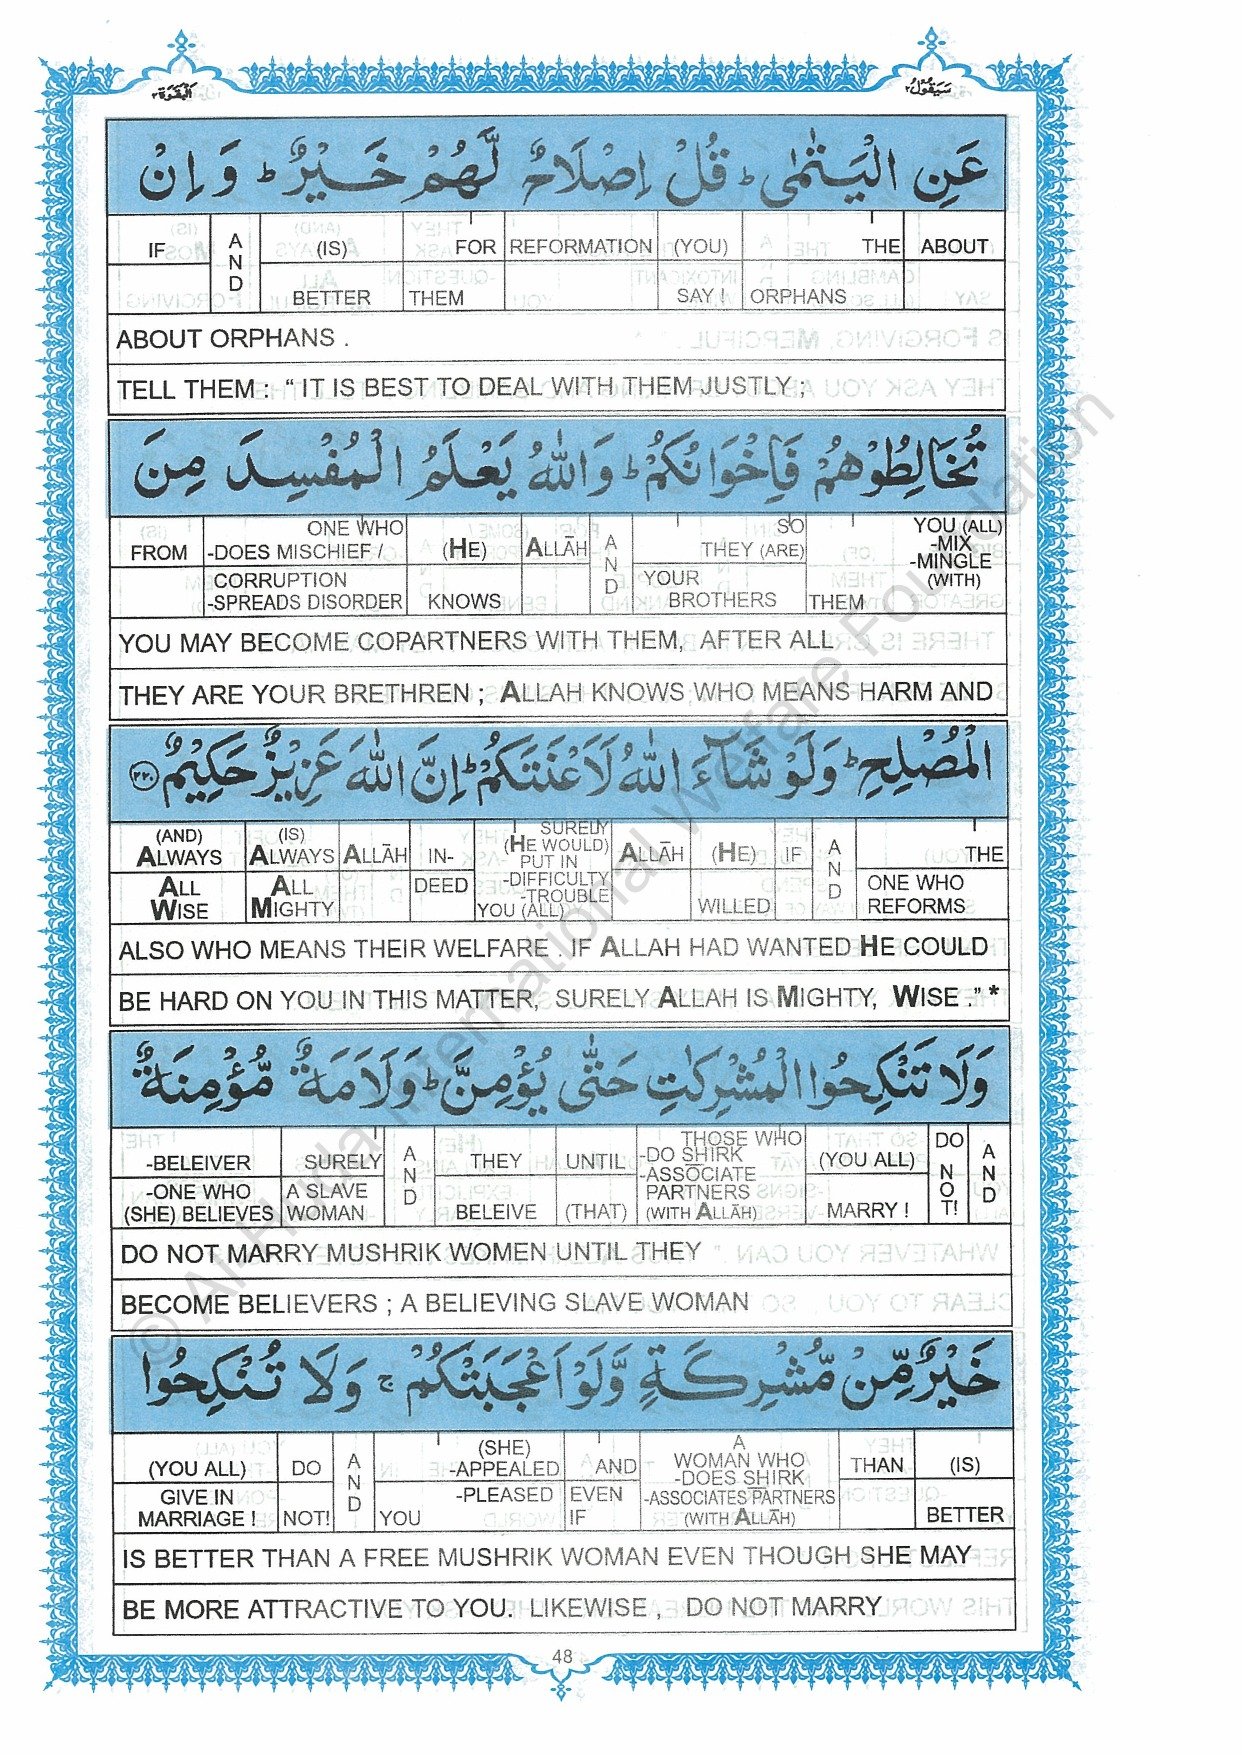 البقرة ٢
سيقول ٢
عَنِ الْيَتٰمٰى ؕ قُلْ اِصْلَاحٌ لَّهُمْ خَيْرٌ ؕ وَ اِنْ
IF AND (IS) FOR REFORMATION (YOU) THE ABOUT
BETTER THEM SAY ! ORPHANS
ABOUT ORPHANS .
TELL THEM : “ IT IS BEST TO DEAL WITH THEM JUSTLY ;
تُخَالِطُوْهُمْ فَاِخْوَانُكُمْ ؕ وَاللّٰهُ يَعْلَمُ الْمُفْسِدَ مِنَ
FROM ONE WHO -DOES MISCHIEF / (HE) ALLĀH AND SO THEY (ARE) YOU (ALL) -MIX -MINGLE (WITH)
CORRUPTION -SPREADS DISORDER KNOWS YOUR BROTHERS THEM
YOU MAY BECOME COPARTNERS WITH THEM, AFTER ALL
THEY ARE YOUR BRETHREN ; ALLAH KNOWS WHO MEANS HARM AND
الْمُصْلِحِ ؕ وَلَوْ شَآءَ اللّٰهُ لَاَعْنَتَكُمْ ؕ اِنَّ اللّٰهَ عَزِيْزٌ حَكِيْمٌ ﴿٢٢٠﴾
(AND) ALWAYS (IS) ALWAYS ALLĀH IN- SURELY (HE WOULD) PUT IN ALLĀH (HE) IF AND THE
ALL WISE ALL MIGHTY DEED -DIFFICULTY -TROUBLE YOU (ALL) WILLED ONE WHO REFORMS
ALSO WHO MEANS THEIR WELFARE . IF ALLAH HAD WANTED HE COULD
BE HARD ON YOU IN THIS MATTER, SURELY ALLAH IS MIGHTY, WISE .” *
وَلَا تَنْكِحُوا الْمُشْرِكٰتِ حَتّٰى يُؤْمِنَّ ؕ وَلَاَمَةٌ مُّؤْمِنَةٌ
-BELEIVER SURELY AND THEY UNTIL THOSE WHO -DO SHIRK -ASSOCIATE (YOU ALL) DO NOT! AND
-ONE WHO (SHE) BELIEVES A SLAVE WOMAN BELEIVE (THAT) PARTNERS (WITH ALLĀH) MARRY !
DO NOT MARRY MUSHRIK WOMEN UNTIL THEY
BECOME BELIEVERS ; A BELIEVING SLAVE WOMAN
خَيْرٌ مِّنْ مُّشْرِكَةٍ وَّلَوْ اَعْجَبَتْكُمْ ۚ وَلَا تُنْكِحُوا
(YOU ALL) DO AND (SHE) -APPEALED AND A WOMAN WHO -DOES SHIRK THAN (IS)
GIVE IN MARRIAGE ! NOT! YOU -PLEASED EVEN IF -ASSOCIATES PARTNERS (WITH ALLĀH) BETTER
IS BETTER THAN A FREE MUSHRIK WOMAN EVEN THOUGH SHE MAY
BE MORE ATTRACTIVE TO YOU. LIKEWISE , DO NOT MARRY
48
© Al-Huda International Welfare Foundation